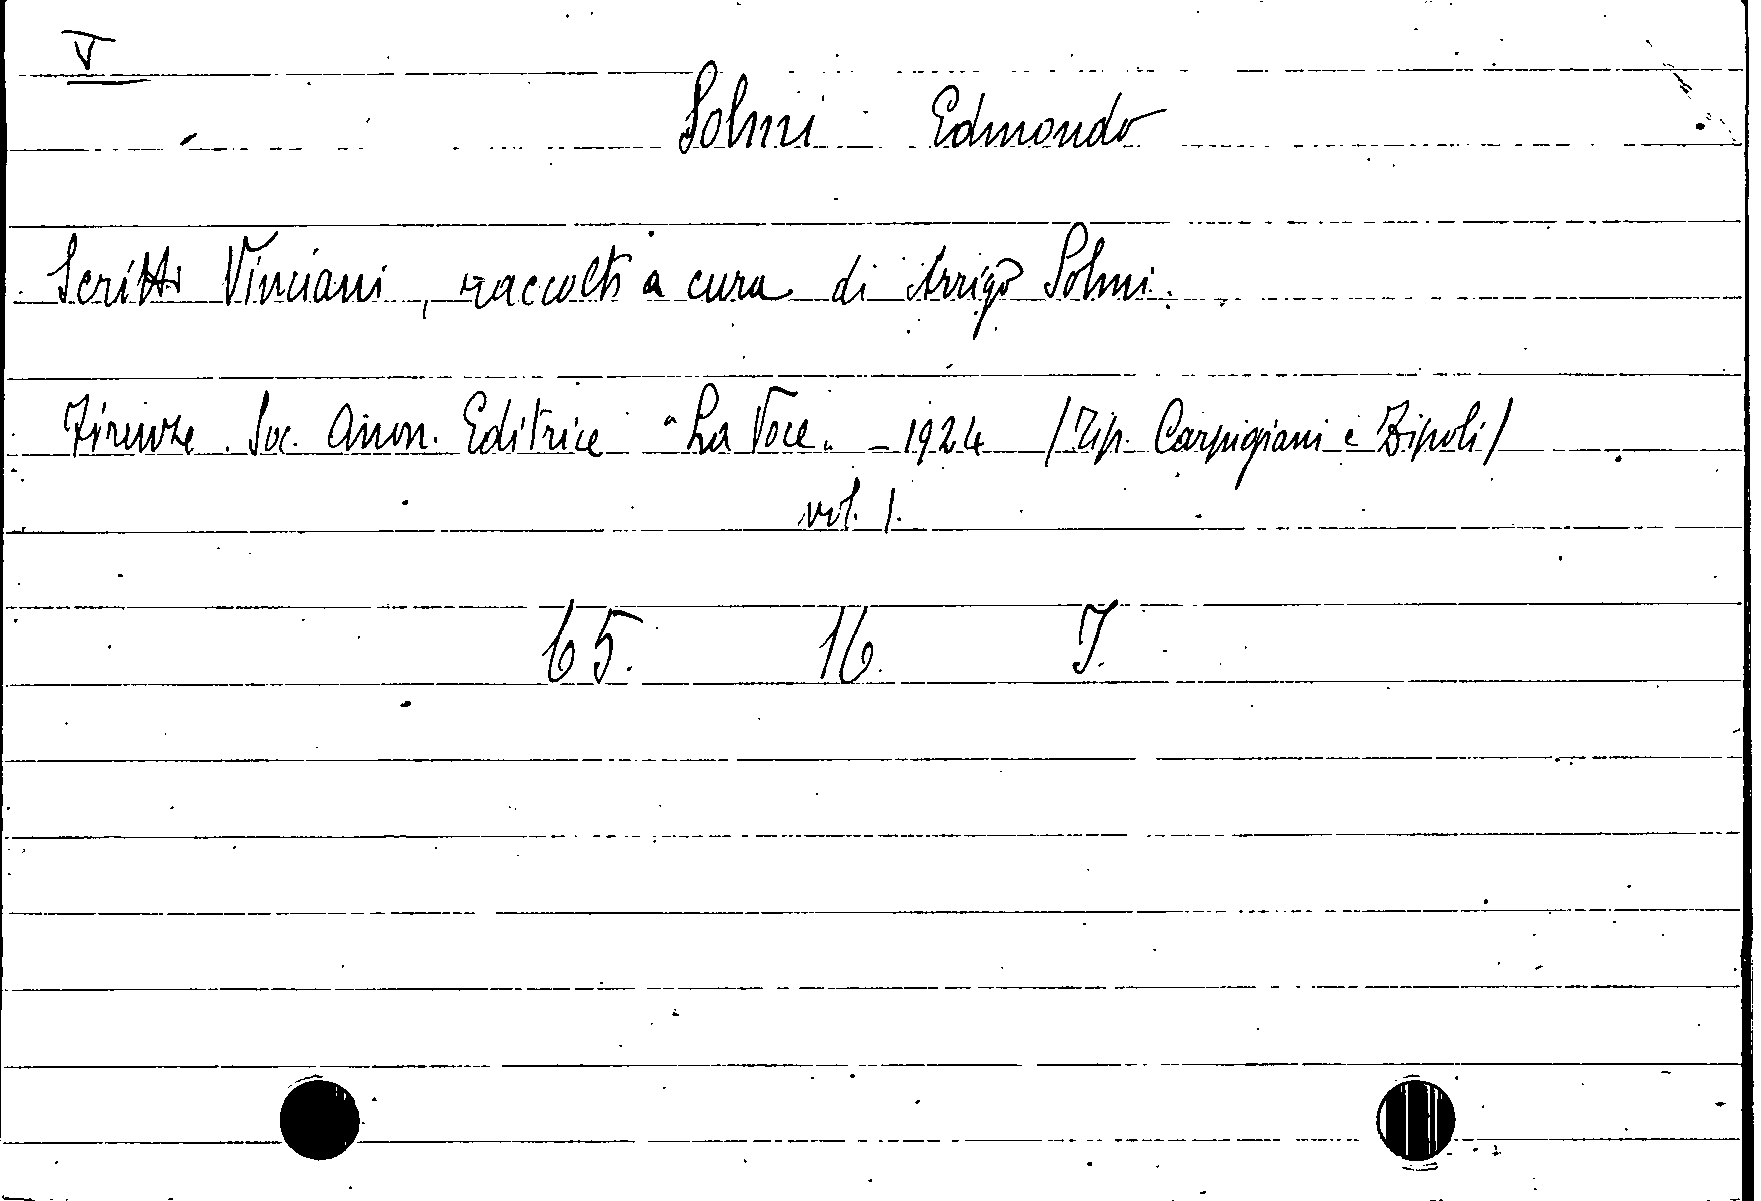 V
Solmi Edmondo
Scritti Vinciani, raccolti a cura di Arrigo Solmi.
Firenze. Soc. Anon. Editrice "La Voce" - 1924 / Tip. Carpigiani e Zipoli /
vol. 1.
65. 16. I.